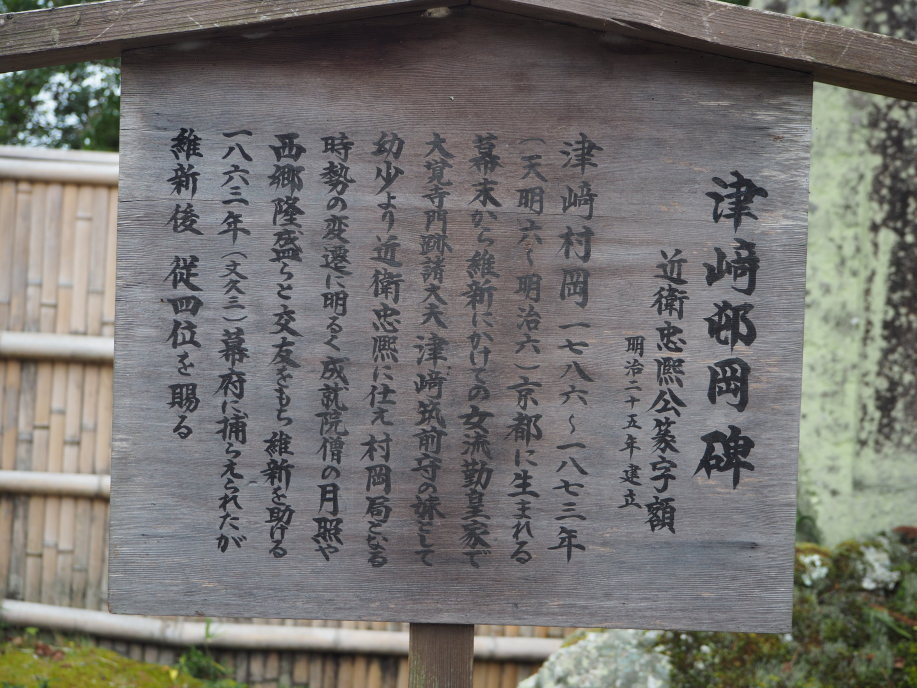 津﨑邨岡碑
近衛忠凞公篆字額
明治二十五年建立
津﨑村岡 一七八六〜一八七三年
(天明六〜明治六)京都に生まれる
幕末から維新にかけての女流勤皇家で
大覚寺門跡諸大夫津﨑筑前守の妹として
幼少より近衛忠凞に仕え村岡局となる
時勢の変遷に明るく成就院僧の月照や
西郷隆盛らと交友をもち維新を助ける
一八六三年(文久三)幕府に捕らえられたが
維新後 従四位を賜る